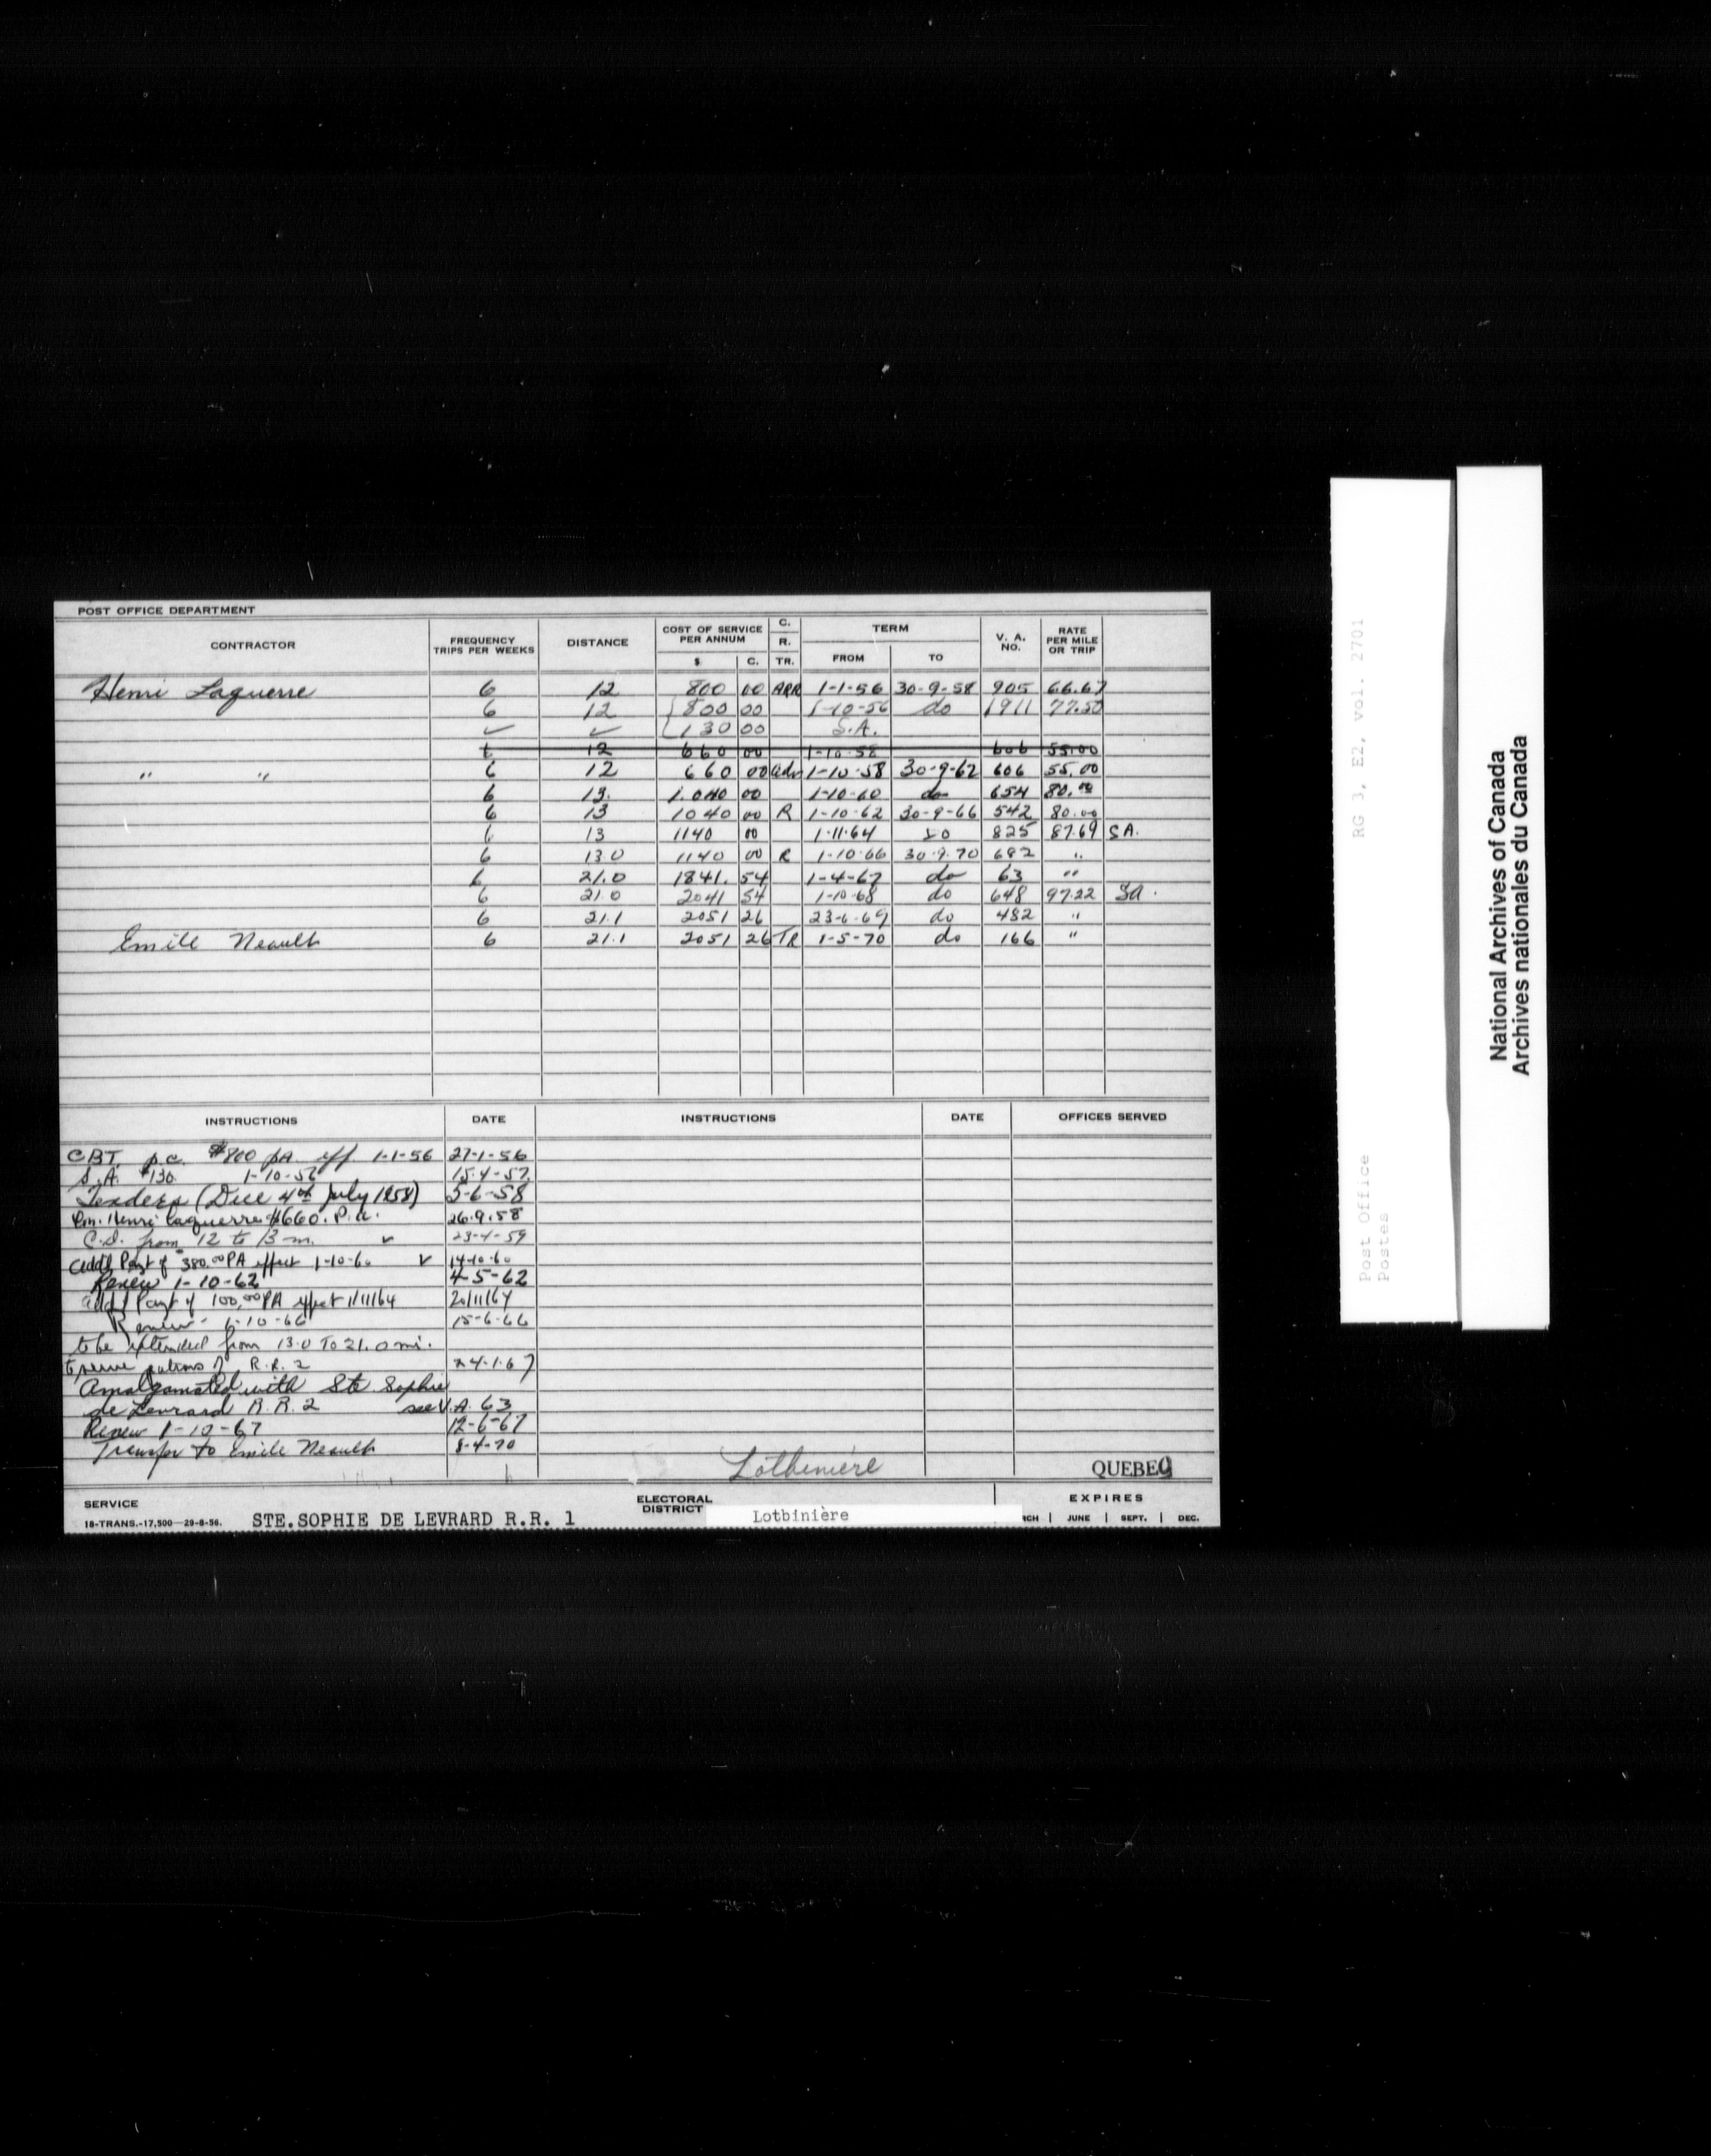 POST OFFICE DEPARTMENT
CONTRACTOR FREQUENCY TRIPS PER WEEKS DISTANCE COST OF SERVICE PER ANNUM $ C. C. R. TR. TERM FROM TO V. A. NO. RATE PER MILE OR TRIP
Henri Laguerre 6 12 800 00 ARR 1-1-56 30-9-58 905 66.67
6 12 800 00 1-10-56 do 1911 77.50
✓ ✓ 130 00 S.A.
6 12 660 00 1-10-58 606 55.00
" " 6 12 660 00 adv 1-10-58 30-9-62 606 55.00
6 13. 1.040 00 1-10-60 do 654 80.00
6 13 1040 00 R 1-10-62 30-9-66 542 80.00
6 13 1140 00 1-11-64 do 825 87.69 SA.
6 13.0 1140 00 R 1-10-66 30.9.70 682 "
6 21.0 1841. 54 1-4-67 do 63 "
6 21.0 2041 54 1-10-68 do 648 97.22 SA.
6 21.1 2051 26 23-6-69 do 482 "
Emile Neault 6 21.1 2051 26 TR 1-5-70 do 166 "
INSTRUCTIONS DATE INSTRUCTIONS DATE OFFICES SERVED
CBT. p.c. $800 pA. eff. 1-1-56 27-1-56
S.A. $130. 1-10-56 15-4-57.
Tenders (Due 4th July 1958) 5-6-58
Henri Laguerre $660. P.a. 26.9.58
C.D. from 12 to 13 m. ✓ 23-4-59
Add'l Payt of $380.00 PA effect 1-10-60 ✓ 14-10-60
Renew 1-10-62 4-5-62
add'l Payt of 100,00 PA effect 1/11/64 20/11/64
Renew - 1-10-66 15-6-66
to be extended from 13.0 To 21.0 mi.
to serve patrons of R.R. 2 4-1-67
Amalgamated with Ste Sophie
de Levrard R.R. 2 see V.A. 63
Renew 1-10-67 12-6-67
Transfer to Emile Neault 8-4-70
Lotbinière
QUEBEC
SERVICE
18-TRANS.-17,500—29-8-56. STE.SOPHIE DE LEVRARD R.R. 1
ELECTORAL DISTRICT Lotbinière
EXPIRES
RCH | JUNE | SEPT. | DEC.
RG 3, E2, vol. 2701
Post Office
Postes
National Archives of Canada
Archives nationales du Canada